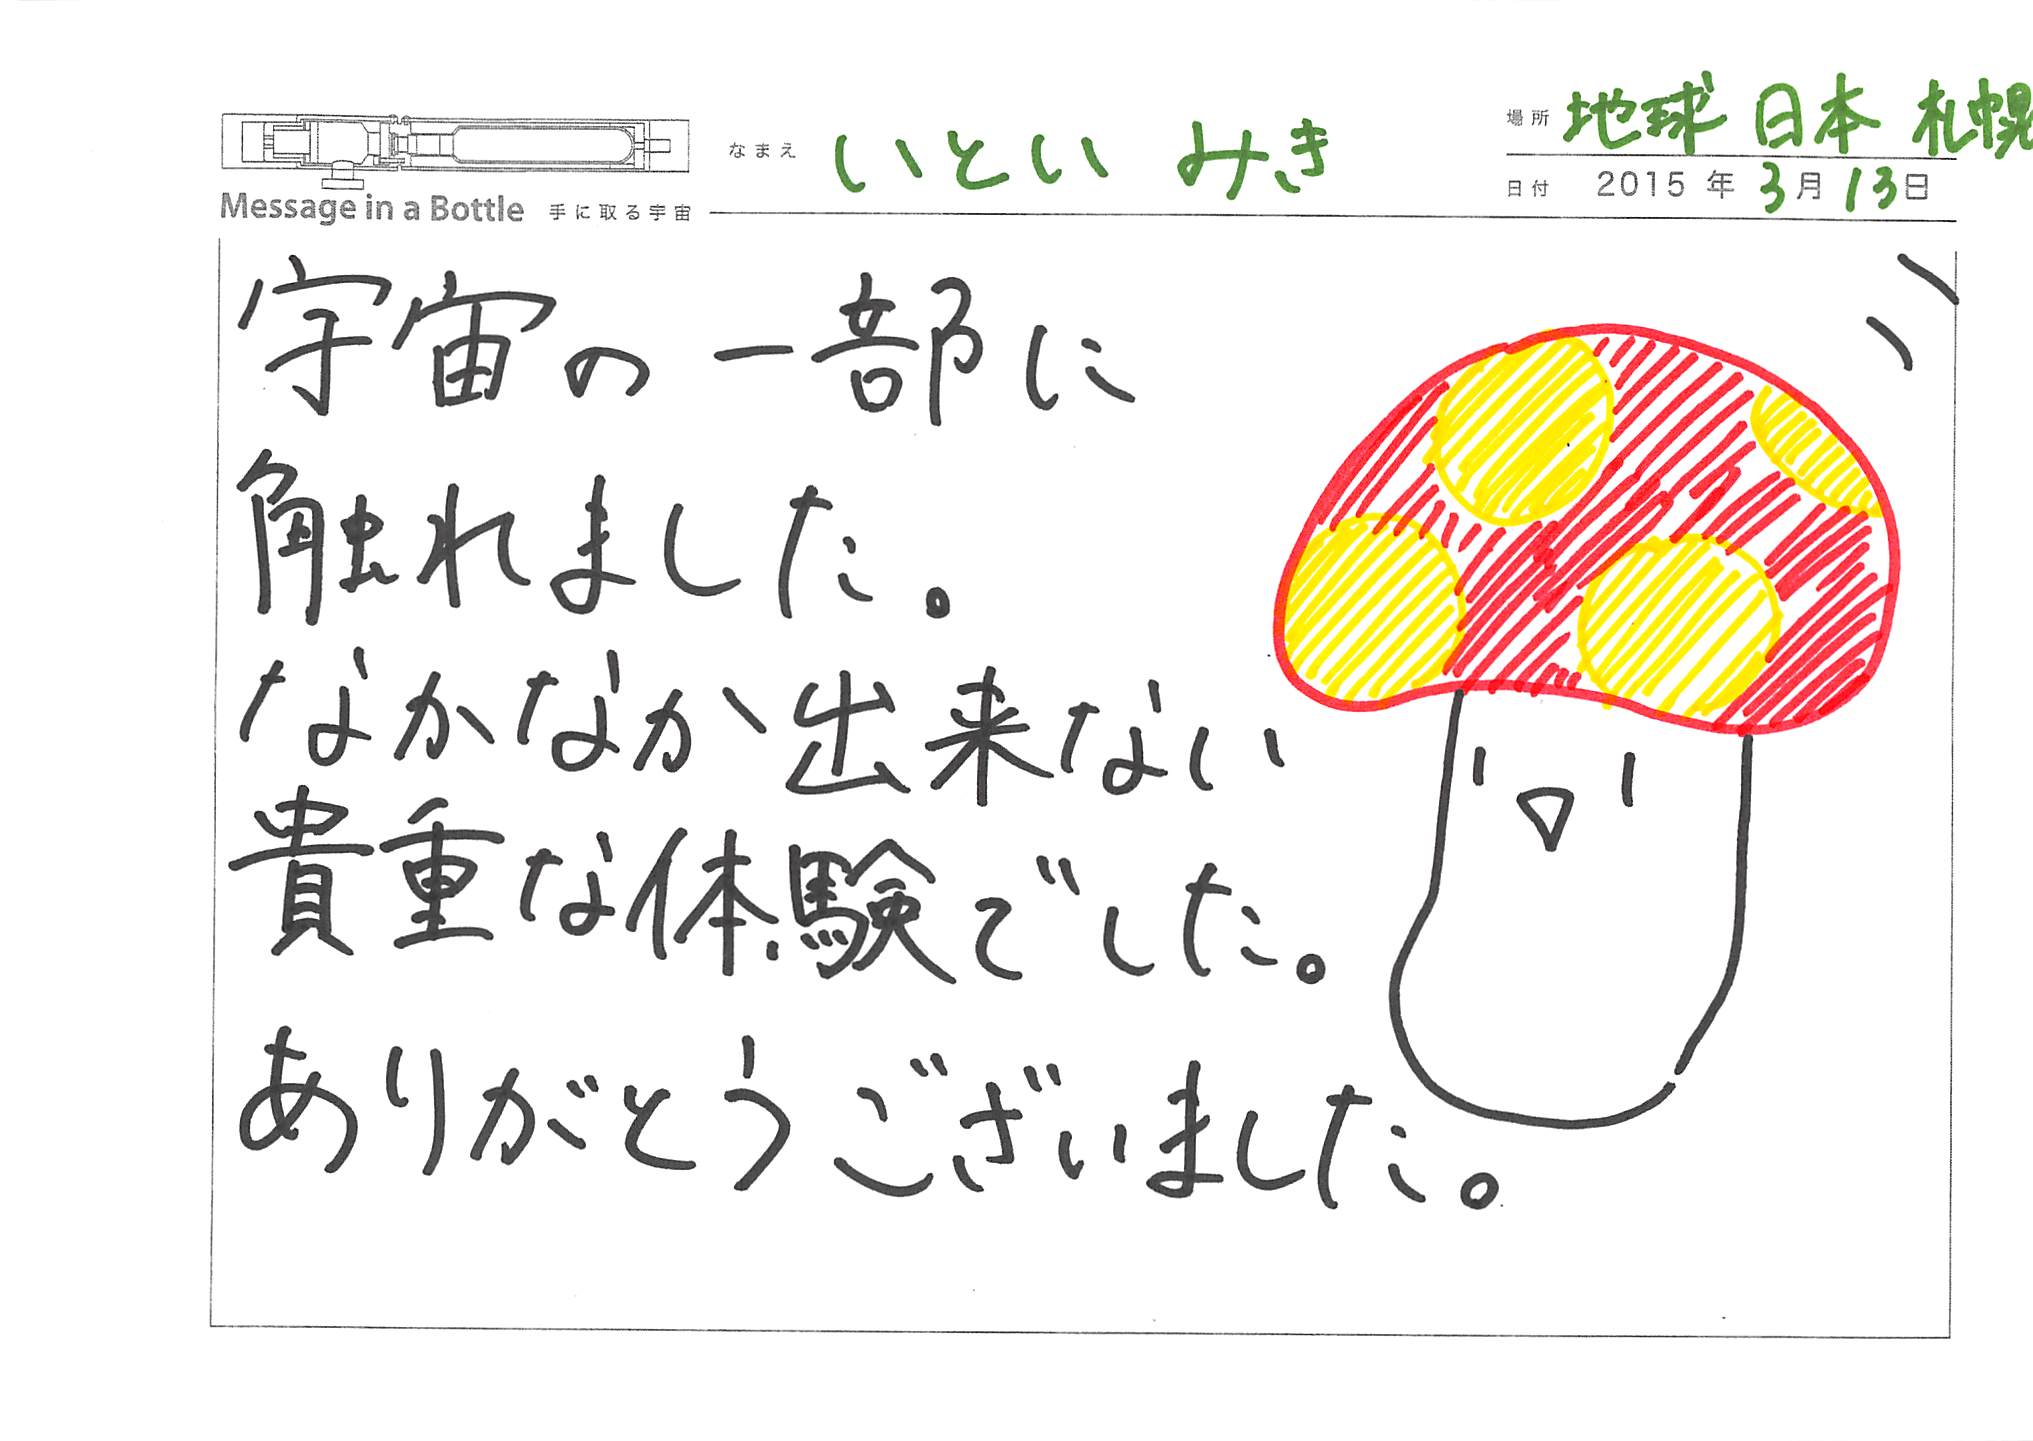 なまえ いとい みき
場所 地球 日本 札幌
日付 2015年 3月 13日
Message in a Bottle 手に取る宇宙
宇宙の一部に
触れました。
なかなか出来ない
貴重な体験でした。
ありがとうございました。